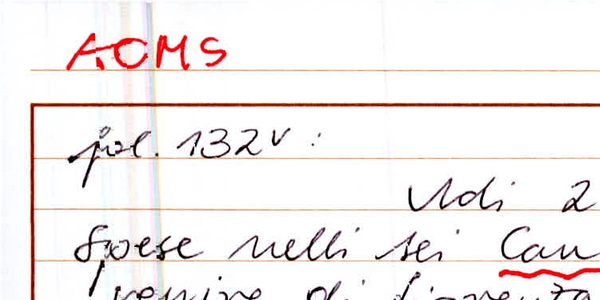 ACMS
fol. 132v :
Adi 2
Spese nelli sei Can
venire di